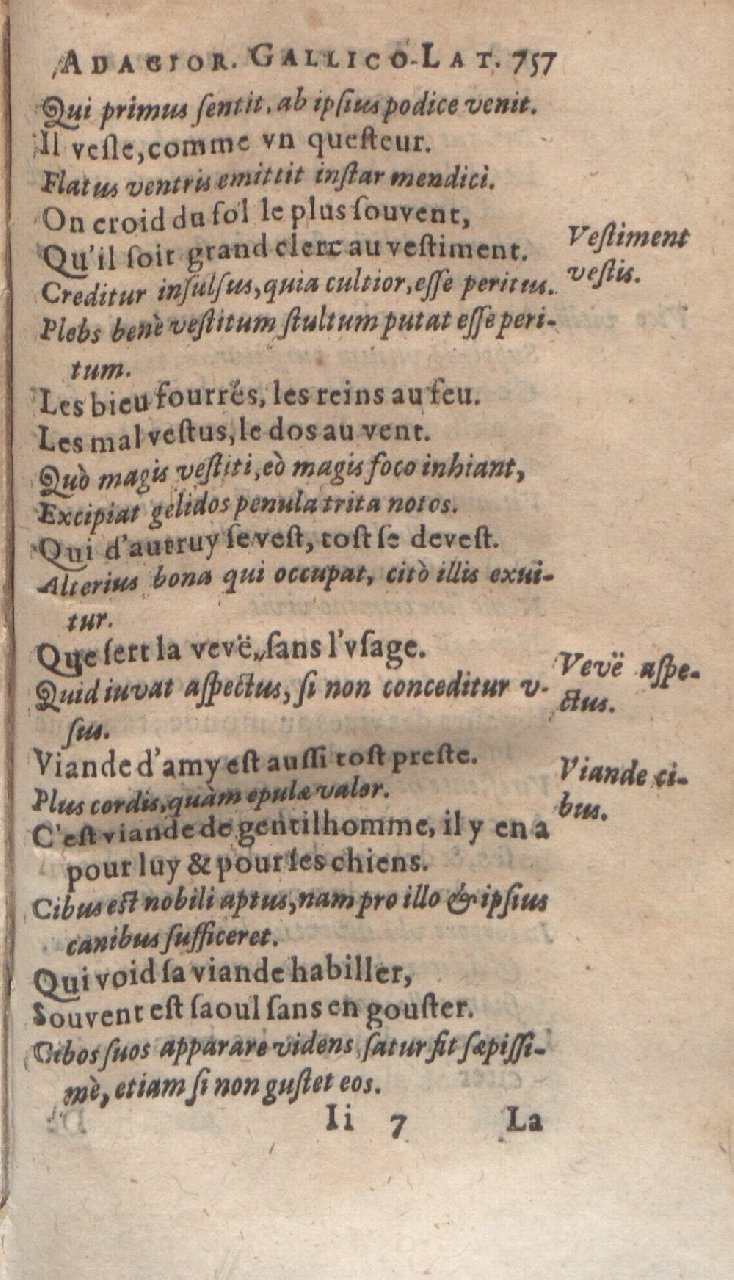 ADAGIOR. GALLICO-LAT. 757
Qui primus ſentit, ab ipſius podice venit.
Il veſſe, comme vn queſteur.
Flatus ventris emittit inſtar mendici.
On croid du ſol le plus ſouvent,
Qu'il ſoit grand clerc au veſtiment.
Veſtiment
veſtis.
Creditur inſulſus, quia cultior, eſſe peritus.
Plebs benè veſtitum ſtultum putat eſſe peri-
tum.
Les bieu fourrés, les reins au feu.
Les mal veſtus, le dos au vent.
Quò magis veſtiti, eò magis foco inhiant,
Excipiat gelidos penula trita notos.
Qui d'autruy ſe veſt, toſt ſe deveſt.
Alterius bona qui occupat, citò illis exui-
tur.
Que ſert la vevë, ſans l'vſage.
Vevë aſpe-
ctus.
Quid iuvat aſpectus, ſi non conceditur v-
ſus.
Viande d'amy eſt auſſi toſt preſte.
Viande ci-
bus.
Plus cordis, quàm epulæ valor.
C'eſt viande de gentilhomme, il y en a
pour luy & pour ſes chiens.
Cibus eſt nobili aptus, nam pro illo & ipſius
canibus ſufficeret.
Qui void ſa viande habiller,
Souvent eſt ſaoul ſans en gouſter.
Cibos ſuos apparare videns, ſatur fit ſæpiſſi-
mè, etiam ſi non guſtet eos.
Ii 7 La